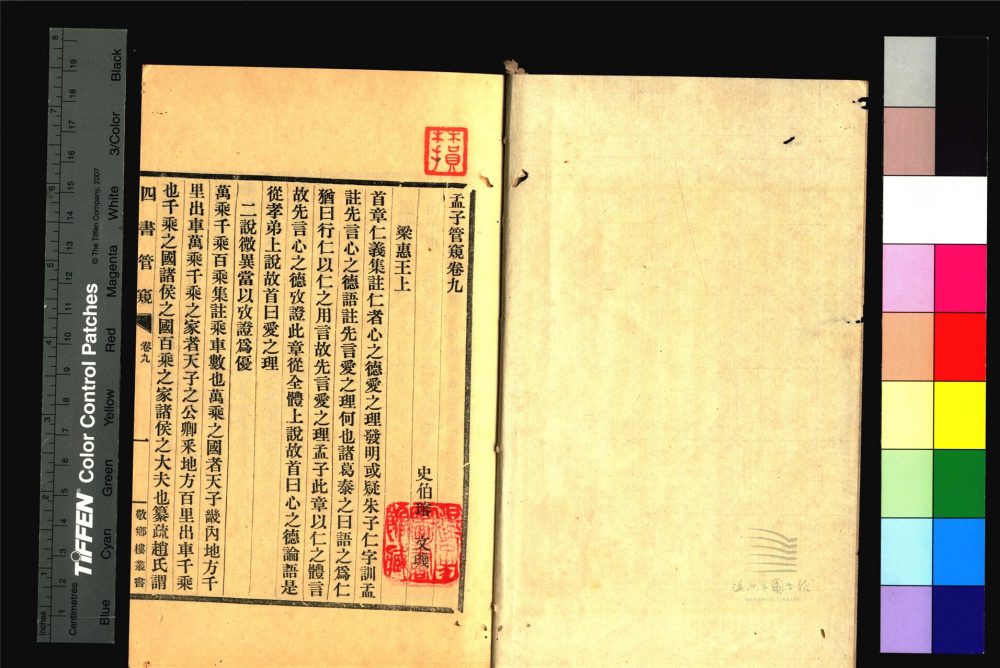 孟子管窺卷九
史伯璿 文璣
梁惠王上
首章仁義集註仁者心之德愛之理發明或疑朱子仁字訓孟
註先言心之德語註先言愛之理何也諸葛泰之曰語之爲仁
猶曰行仁以仁之用言故先言愛之理孟子此章以仁之體言
故先言心之德攷證此章從全體上說故首曰心之德論語是
從孝弟上說故首曰愛之理
二說微異當以攷證爲優
萬乘千乘百乘集註乘車數也萬乘之國者天子畿內地方千
里出車萬乘千乘之家者天子之公卿釆地方百里出車千乘
也千乘之國諸侯之國百乘之家諸侯之大夫也纂疏趙氏謂
四書管窺 卷九 一 敬鄉樓叢書
TIFFEN Color Control Patches
© The Tiffen Company, 2007
Inches
Centimetres
Blue Cyan Green Yellow Red Magenta White 3/Color Black
1 2 3 4 5 6 7 8
1 2 3 4 5 6 7 8 9 10 11 12 13 14 15 16 17 18 19
WENZHOU LIBRARY